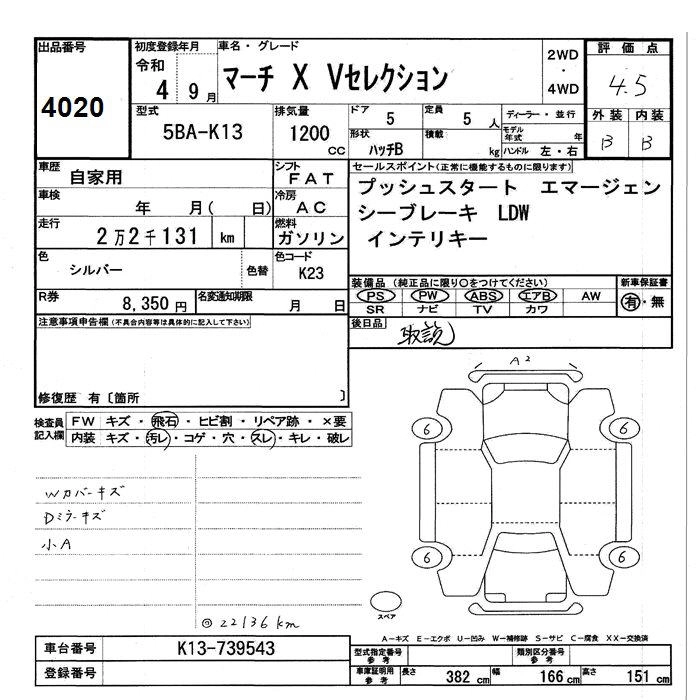 出品番号
4020
初度登録年月
令和 4 9月
車名・グレード
マーチ X Vセレクション
2WD
・
4WD
評価点
4.5
外装 内装
B B
型式
5BA-K13
排気量
1200 cc
ドア 5
定員 5 人
形状 ハッチB
積載 kg
ディーラー・並行
モデル年式 年
ハンドル 左・右
車歴 自家用
シフト FAT
車検 年 月( 日)
冷房 AC
走行 2万2千131 km
燃料 ガソリン
色 シルバー 色替
色コード K23
R券 8,350円
名変通知期限 月 日
セールスポイント(正常に機能するものに限ります)
プッシュスタート エマージェン
シーブレーキ LDW
インテリキー
装備品 (純正品に限り○をつけてください)
PS PW ABS エアB AW
SR ナビ TV カワ
新車保証書
有・無
後日品 取説
注意事項申告欄(不具合内容等は具体的に記入して下さい)
修復歴 有〔箇所 〕
検査員記入欄
FW キズ・飛石・ヒビ割・リペア跡・×要
内装 キズ・汚レ・コゲ・穴・スレ・キレ・破レ
Wカバーキズ
Dミラーキズ
小A
◎22136km
A2
6 6
6 6
スペア
A-キズ E-エクボ U-凹み W-補修跡 S-サビ C-腐食 XX-交換済
車台番号 K13-739543
登録番号
型式指定番号 参考
類別区分番号 参考
車庫証明用 参考
長さ 382 cm
幅 166 cm
高さ 151 cm